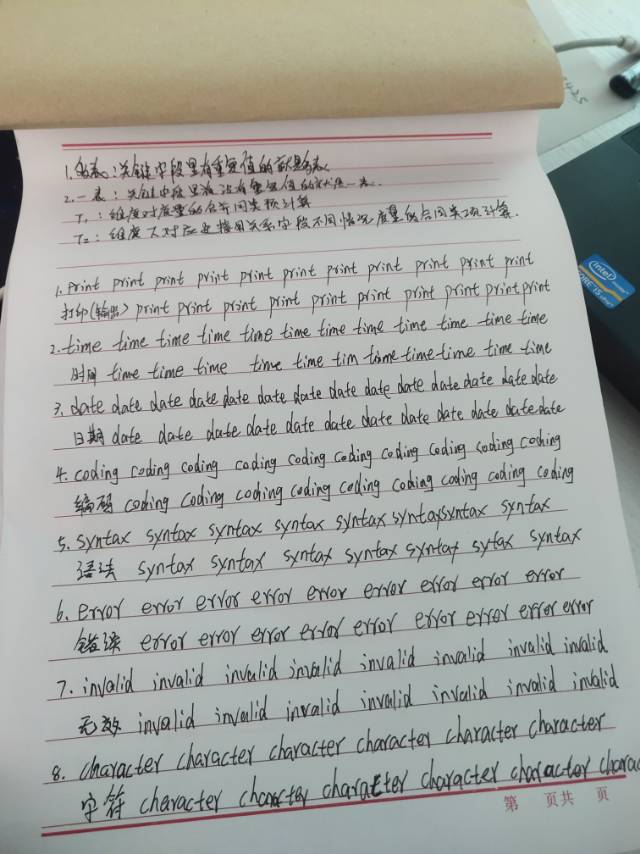 1.多表:关键字段里有重复值的就是多表
2.一表:关键字段里没有重复值的就是一表.
T1:维度对度量的合并同类项计算
T2:维度又对应连接用关系字段不同情况度量的合同类项计算.
1. print print print print print print print print print print print
打印(输出) print print print print print print print print print print
2. time time time time time time time time time time time time
时间 time time time time time tim time time time time time
3. date date date date date date date date date date date date date
日期 date date date date date date date date date date date
4. coding coding coding coding coding coding coding coding coding coding
编码 coding coding coding coding coding coding coding coding coding
5. syntax syntax syntax syntax syntax syntax syntax syntax
语法 syntax syntax syntax syntax syntax sytax syntax
6. error error error error error error error error error
错误 error error error error error error error error error
7. invalid invalid invalid invalid invalid invalid invalid invalid
无效 invalid invalid invalid invalid invalid invalid invalid
8. character character character character character character
字符 character character character character character charac
第 页共 页
intel
CORE i5
5425